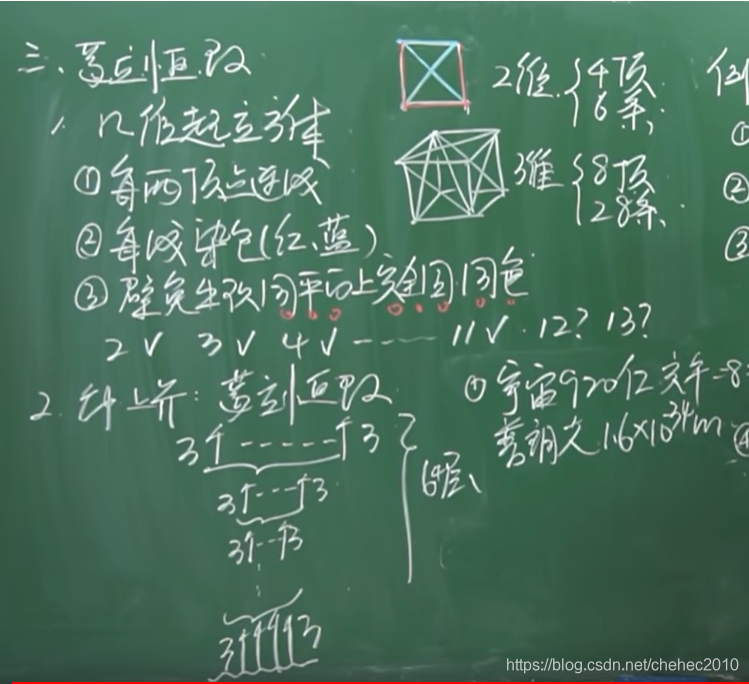 三、葛立恒数
1、n维超立方体
2维 {4顶
6条,
例
①每两顶点连线
3维 {8顶
28条、
①
②每线染色(红、蓝)
②
③避免出现同平面上完全图同色
③
2√ 3√ 4√ ---- 11√. 12? 13?
2. 叶上介: 葛立恒数
①宇宙920亿光年=8
普朗克 1.6×10³⁴m
④
3↑-----↑3
3↑---↑3
64层、
3↑--↑3
⋮
3↑↑↑↑3
https://blog.csdn.net/chehec2010